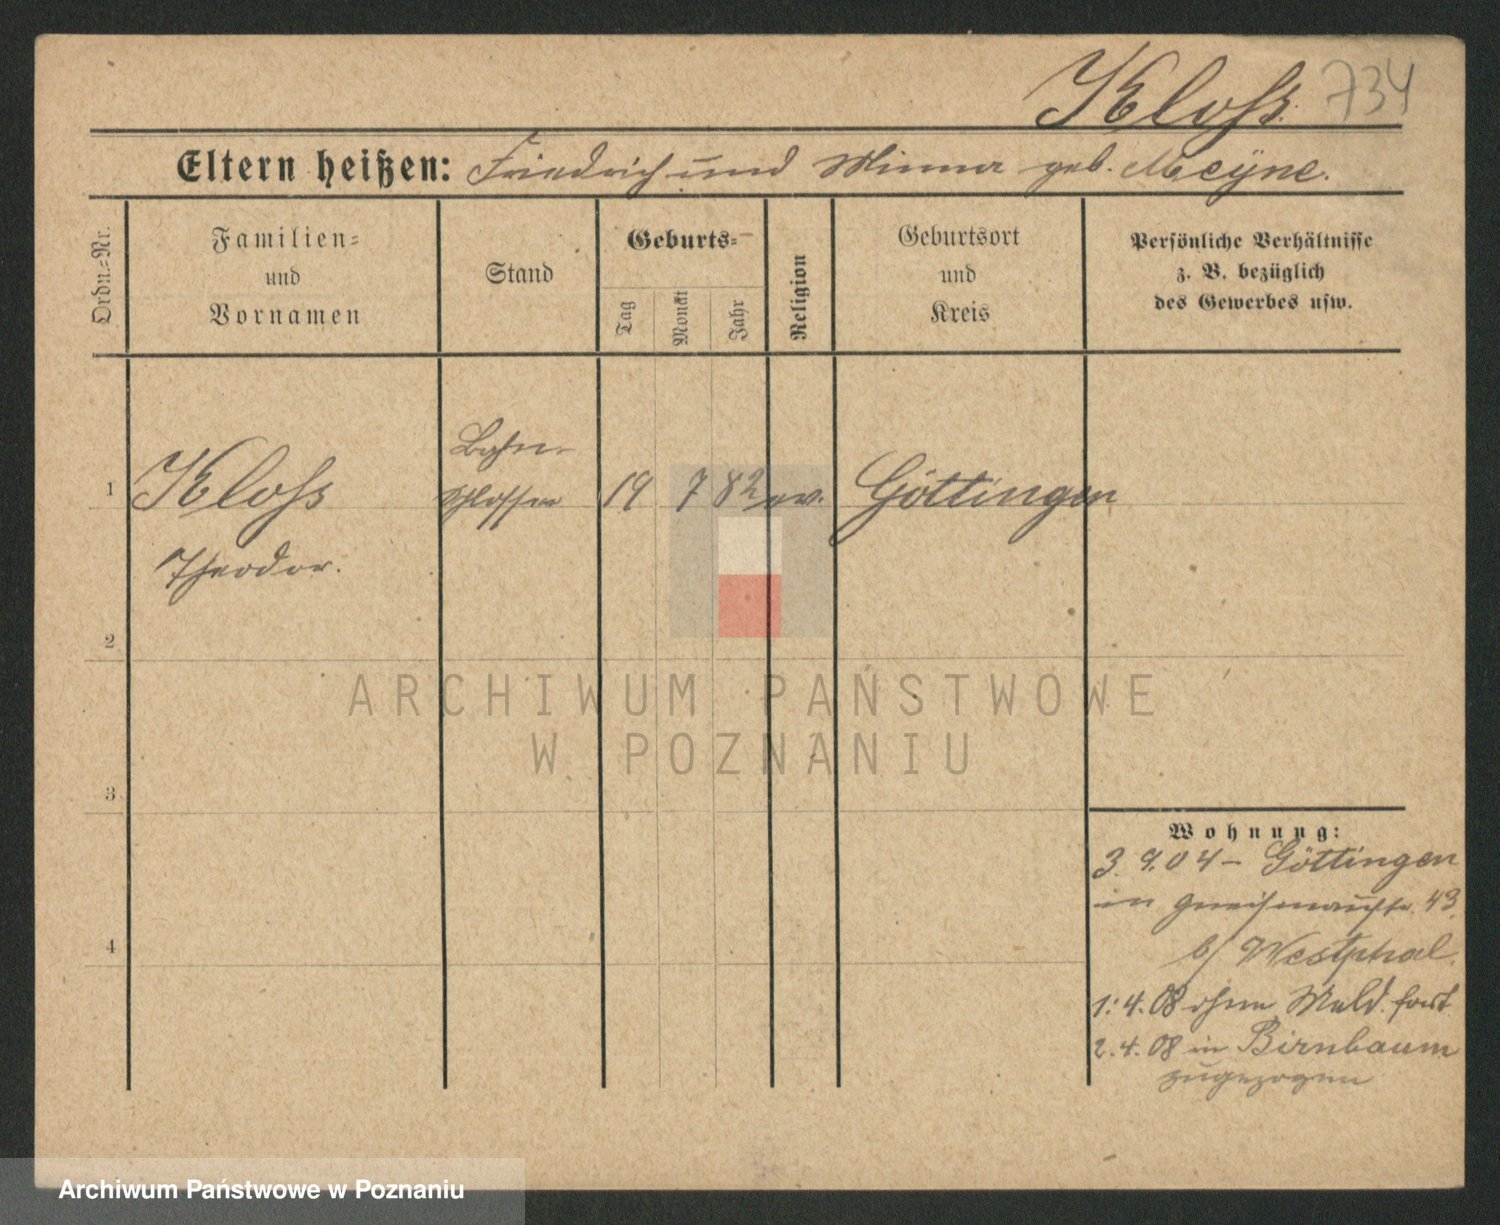 Kloß. 734
Eltern heißen: Friedrich und Minna geb. Meyne.
Ordn.=Nr.
Familien=
und
Vornamen
Stand
Geburts=
Tag
Monat
Jahr
Religion
Geburtsort
und
Kreis
Persönliche Verhältnisse
z. B. bezüglich
des Gewerbes usw.
1 Kloß
Theodor.
Bahn-
schlosser
19 7 82 ev. Göttingen
2
3
4
Wohnung:
3. 9.04 – Göttingen
in Gneisenaustr. 43.
b/ Westphal.
1. 4. 08 ohne Meld. fort
2. 4. 08 in Birnbaum
zugezogen
ARCHIWUM PAŃSTWOWE
W POZNANIU
Archiwum Państwowe w Poznaniu